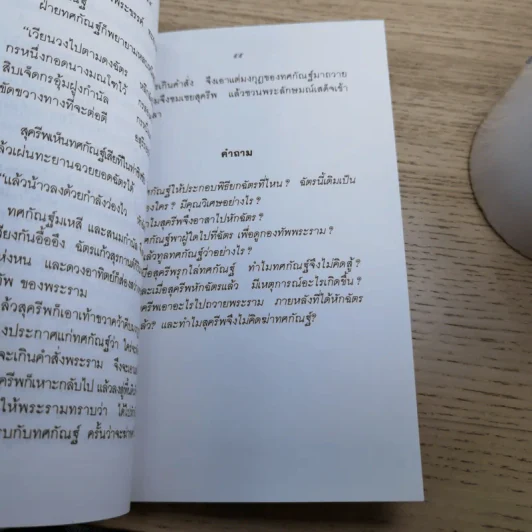 พระขรรค์
ฝ่ายทศกัณฐ์ก็พยายาม
"เวียนวงไปตามดงฉัตร
กรหนึ่งกอดนางมณโฑไว้
สิบเจ็ดกรอุ้มฝูงกำนัล
ขัดขวางทางที่จะต่อดี
สุครีพเห็นทศกัณฐ์เสียที
แล้วเผ่นทะยานฉวยยอดฉัตรได้
"แล้วน้าวลงด้วยกำลังว่องไว
ทศกัณฐ์มเหสี และสนมกำนัล
เรียงกันอื้ออึง ฉัตรแก้วสุรกานต์
แห่งหน และดวงอาทิตย์ก็ส่องสว่าง
ทัพ ของพระราม
แล้วสุครีพก็เอาเท้าขวาคว้า
ร้องประกาศแก่ทศกัณฐ์ว่า
จะเกินคำสั่งพระราม จึงจะ
สุครีพก็เหาะกลับไป แล้วลงสู่ที่
ให้พระรามทราบว่า ได้ไป
รบกับทศกัณฐ์ ครั้นว่าจะฆ่า
๕๕
เกินคำสั่ง จึงเอาแต่มงกุฎของทศกัณฐ์มาถวาย
จึงชมเชยสุครีพ แล้วชวนพระลักษมณ์เสด็จเข้า
ลา
คำถาม
ทศกัณฐ์ให้ประกอบพิธียกฉัตรที่ไหน? ฉัตรนี้เดิมเป็น
ของใคร? มีคุณวิเศษอย่างไร?
ทำไมสุครีพจึงอาสาไปหักฉัตร?
ทศกัณฐ์พาผู้ใดไปที่ฉัตร เพื่อดูกองทัพพระราม?
แล้วทูลทศกัณฐ์ว่าอย่างไร?
เมื่อสุครีพรุกไล่ทศกัณฐ์ ทำไมทศกัณฐ์จึงไม่คิดสู้?
และเมื่อสุครีพหักฉัตรแล้ว มีเหตุการณ์อะไรเกิดขึ้น?
สุครีพเอาอะไรไปถวายพระราม ภายหลังที่ได้หักฉัตร
แล้ว? และทำไมสุครีพจึงไม่คิดฆ่าทศกัณฐ์?